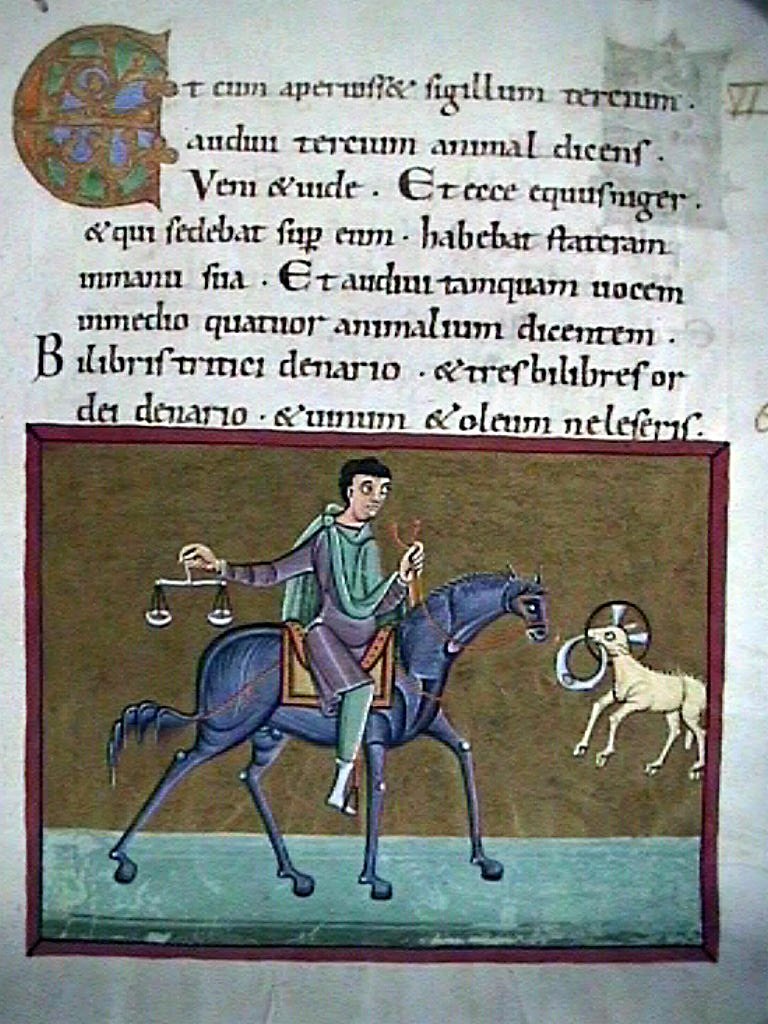 Et cum aperuiss& sigillum tercium.
audiui tercium animal dicens.
Veni &uide. Et ecce equus niger.
&qui sedebat sup eum. habebat stateram
inmanu sua. Et audiui tamquam uocem
inmedio quatuor animalium dicentem.
Bilibris tritici denario. &tres bilibres or
dei denario. &uinum &oleum ne leseris.